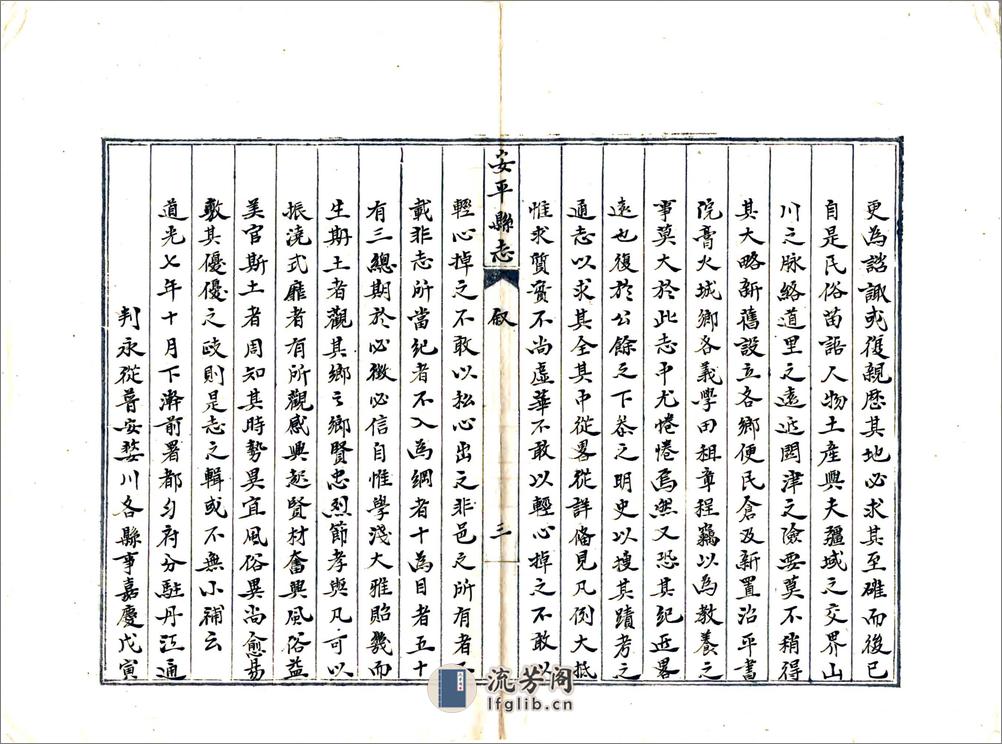 更為諮諏或復親歷其地必求其至確而後已
自是民俗苗語人物土產與夫疆域之交界山
川之脉絡道里之遠近関津之險要莫不稍得
其大略新舊設立各鄉便民倉及新置治平書
院膏火城鄉各義學田租章程竊以為教養之
事莫大於此志中尤惓惓焉然又恐其紀近畧
遠也復於公餘之下叅之明史以搜其蹟考之
通志以求其全其中從畧從詳備見凡例大抵
惟求質實不尚虛華不敢以輕心掉之不敢以
安平縣志 叙 三
輕心掉之不敢以私心出之非邑之所有者不
載非志所當紀者不入為綱者十為目者五十
有三總期於必徵必信自惟學淺大雅貽譏而
生斯土者觀其鄉之鄉賢忠烈節孝與凡可以
振澆式靡者有所觀感興起賢材奮興風俗益
美官斯土者周知其時勢異宜風俗異尚愈易
敷其優優之政則是志之輯或不無小補云
道光七年十月下澣前署都勻府分駐丹江通
判永從普安婺川各縣事嘉慶戊寅
流芳阁
lfglib.cn